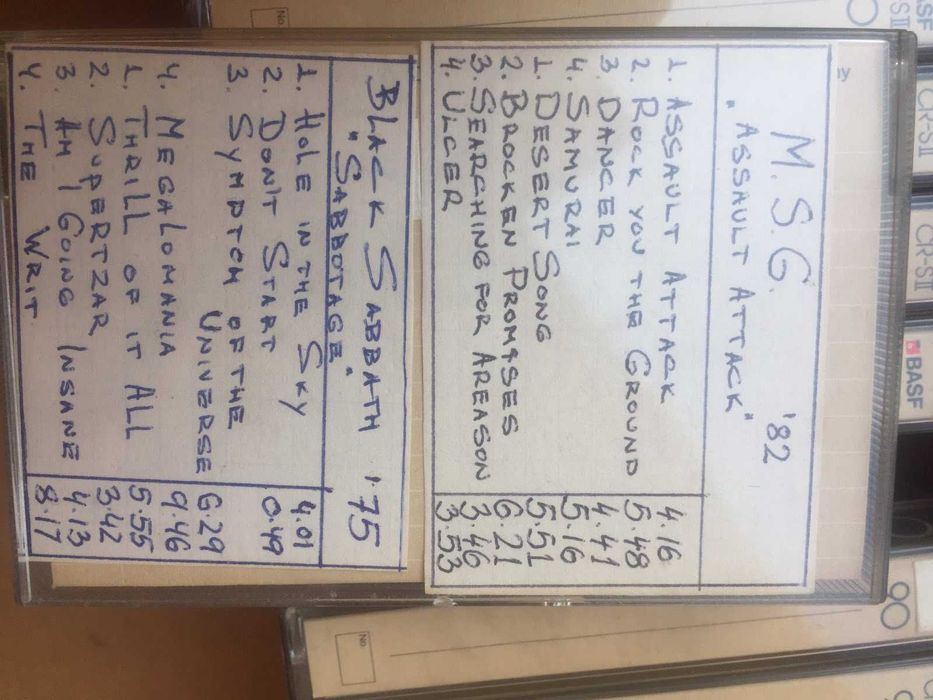 M.S.G. '82
"ASSAULT ATTACK"
1. ASSAULT ATTACK 4.16
2. ROCK YOU THE GROUND 5.48
3 DANCER 4.41
4. SAMURAI 5.16
1. DESERT SONG 5.51
2. BROCKEN PROMISES 6.21
3. SEARCHING FOR AREASON 3.46
4. ULCER 3.53
BLACK SABBATH '75
"SABBOTAGE"
1. HOLE IN THE SKY 4.01
2. DON'T START 0.49
3. SYMPTOM OF THE
UNIVERSE 6.29
4. MEGALOMANIA 9.46
1. THRILL OF IT ALL 5.55
2. SUPERTZAR 3.42
3. AM I GOING INSANE 4.13
4. THE WRIT 8.17
No
CR-SII
CR-SII
BASF
90
No